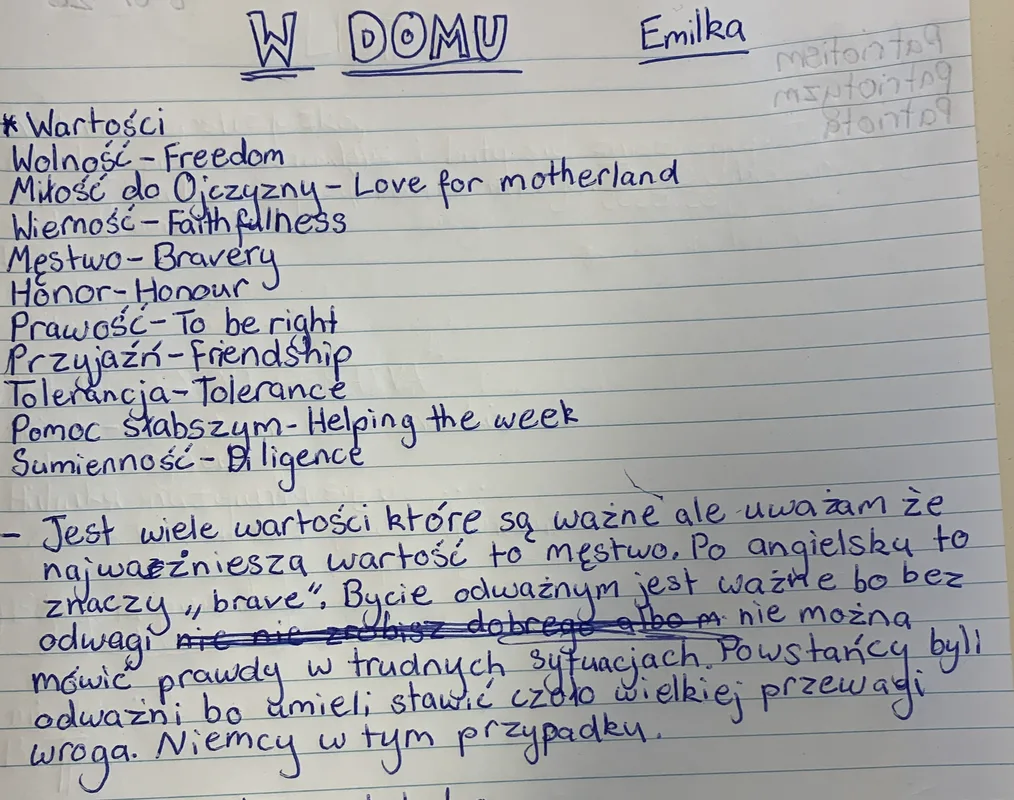 W DOMU Emilka
* Wartości
Wolność - Freedom
Miłość do Ojczyzny - Love for motherland
Wierność - Faithfulness
Męstwo - Bravery
Honor - Honour
Prawość - To be right
Przyjaźń - friendship
Tolerancja - Tolerance
Pomoc słabszym - Helping the week
Sumienność - Diligence
- Jest wiele wartości które są ważne ale uważam że
najważniesza wartość to męstwo. Po angielsku to
znaczy „brave". Bycie odważnym jest ważne bo bez
odwagi nie nie zrobisz dobrego albo m nie można
mówić prawdy w trudnych sytuacjach. Powstańcy byli
odważni bo umieli stawić czoło wielkiej przewagi
wroga. Niemcy w tym przypadku.